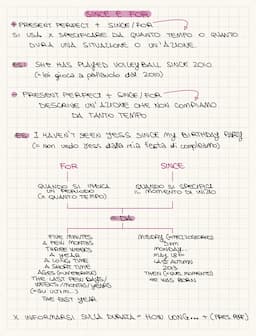 SINCE E FOR
PRESENT PERFECT + SINCE/FOR
SI USA X SPECIFICARE DA QUANTO TEMPO O QUANTO
DURA UNA SITUAZIONE O UN'AZIONE.
ES: SHE HAS PLAYED VOLLEYBALL SINCE 2010
(= lei gioca a pallavolo dal 2010)
PRESENT PERFECT + SINCE/FOR
DESCRIVE UN'AZIONE CHE NON COMPIAMO
DA TANTO TEMPO
ES: I HAVEN'T SEEN JESS SINCE MY BIRTHDAY PARTY
(= non vedo Jess dalla mia festa di compleanno)
FOR SINCE
QUANDO SI INDICA QUANDO SI SPECIFICA
UN PERIODO IL MOMENTO DI INIZIO
(X QUANTO TEMPO)
DA
FIVE MINUTES
A FEW MONTHS 5am
THREE WEEKS MONDAY
A YEAR MAY 18TH
A LONG TIME LAST AUTUMN
A SHORT TIME 2013
AGES THEN
THE LAST FEW DAYS/ HE WAS BORN
WEEKS/MONTHS/YEARS
THE LAST YEAR
X INFORMARSI SULLA DURATA = HOW LONG... + (PRES. PERF.)